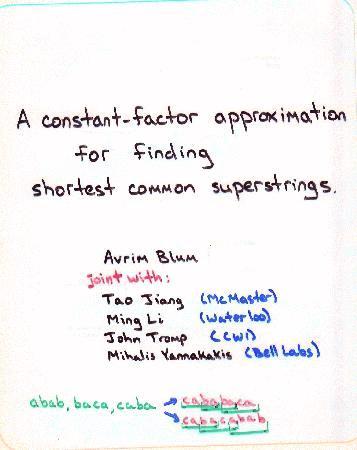 A constant-factor approximation
for finding
shortest common superstrings.
Avrim Blum
joint with:
Tao Jiang (McMaster)
Ming Li (Waterloo)
John Tromp (CWI)
Mihalis Yannakakis (Bell Labs)
abab, baca, caba → cababaca,
→ cabacabab